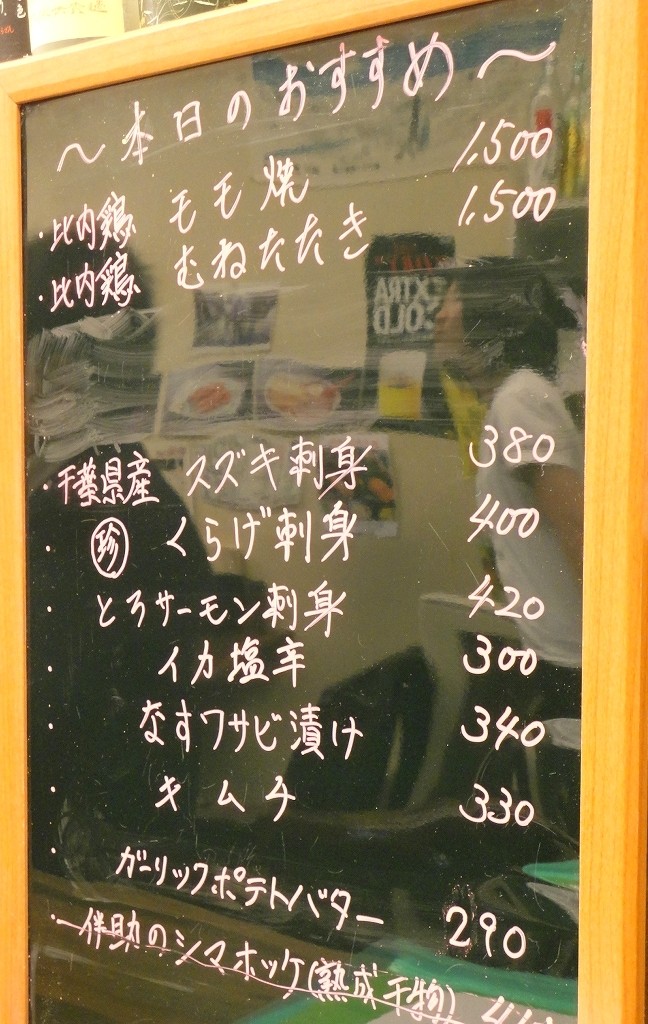 ～本日のおすすめ～
・比内鶏 モモ焼 1,500
・比内鶏 むねたたき 1,500
EXTRA
COLD
・千葉県産 スズキ刺身 380
・㊥珍 くらげ刺身 400
・とろサーモン刺身 420
・イカ塩辛 300
・なすワサビ漬け 340
・キムチ 330
・ガーリックポテトバター 290
・伴助のシマホッケ(熟成干物)